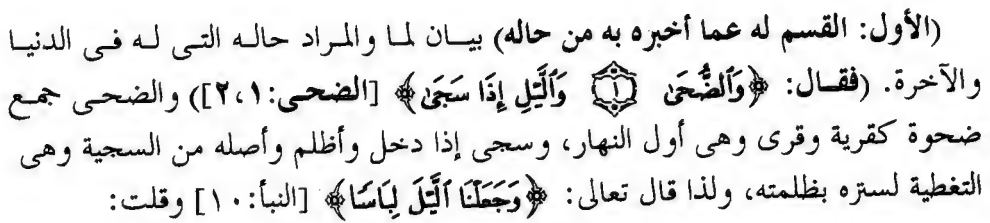 (الأول: القسم له عما أخبره به من حاله) بيــان لما والمـراد حالـه التـى لـه فـى الدنيـا
والآخرة. (فقـــال: ﴿وَٱلضُّحَىٰ ۝١ وَٱلَّيۡلِ إِذَا سَجَىٰ﴾ [الضحـى:٢،١]) والضحـى جمـع
ضحوة كقرية وقرى وهى أول النهار، وسجى إذا دخل وأظلم وأصله من السجية وهى
التغطية لستره بظلمته، ولذا قال تعالى: ﴿وَجَعَلۡنَا ٱلَّيۡلَ لِبَاسٗا﴾ [النبأ:١٠] وقلت: